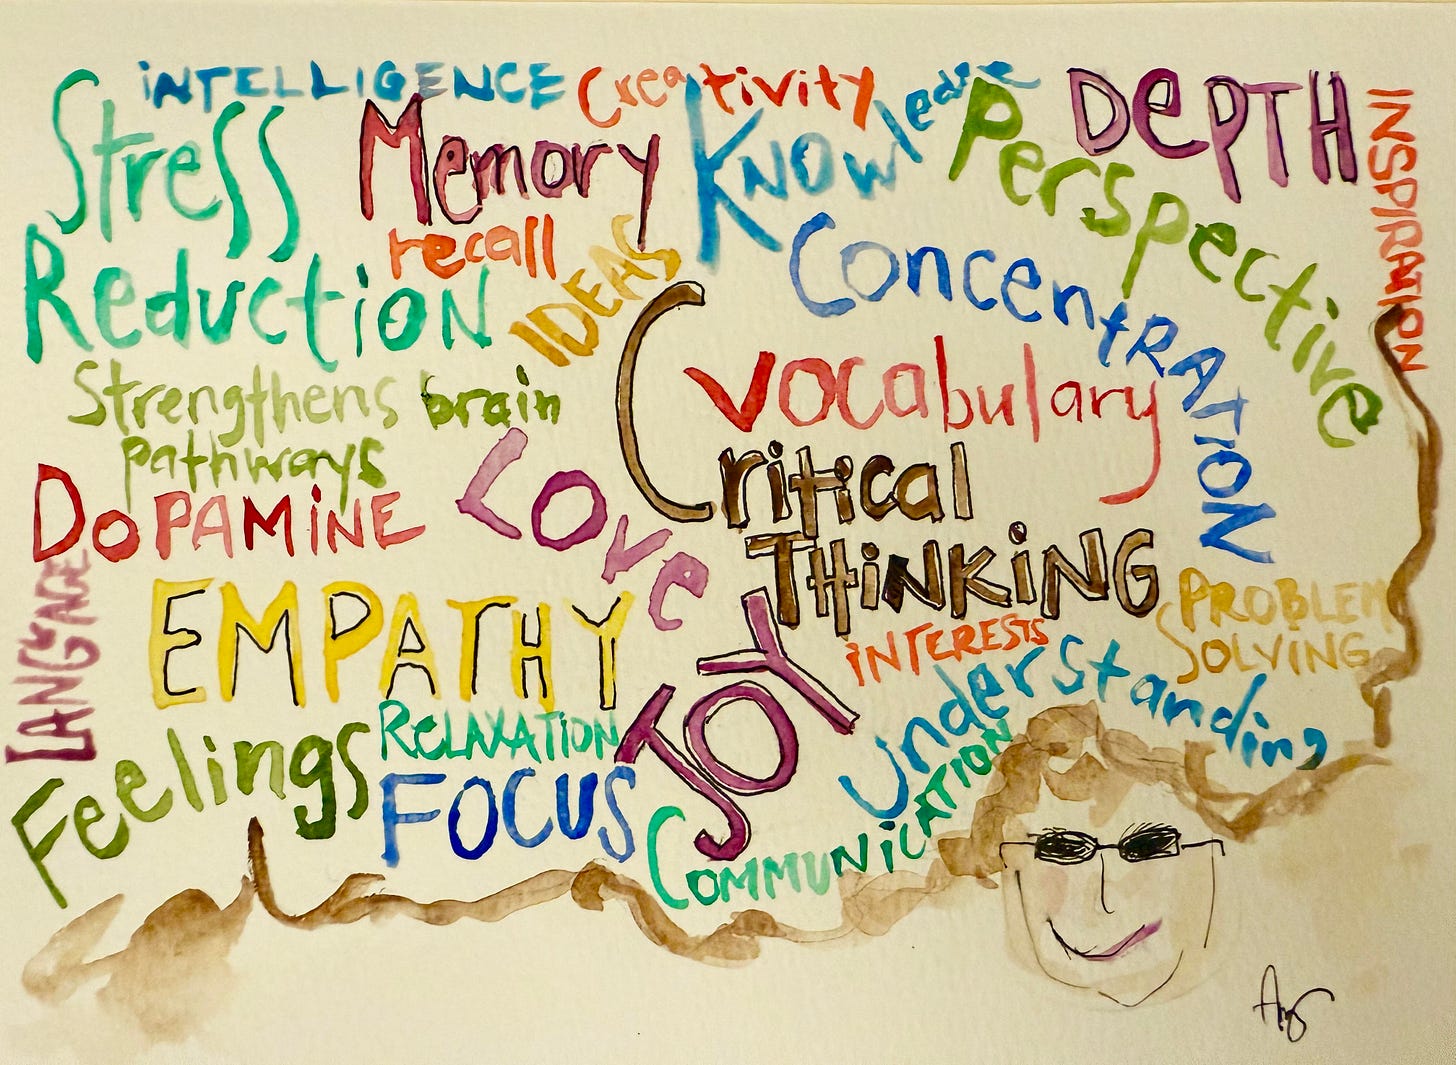 iNTELLIGENCE
Creativity
Stress
Reduction
Memory
recall
IDEAS
Knowledge
Perspective
DePTH
INSPIRATION
ConcentRATION
vocabulary
Strengthens brain
pathways
DoPAMiNE
Love
Critical
THiNKiNG
LANGUAGE
EMPATHY
JOY
iNTERESTS
PROBLEM
SOLViNG
Understanding
Feelings
ReLAXATiON
FOCUS
COMMUNiCATiON